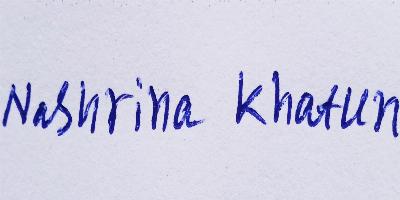 Nashrina Khatun